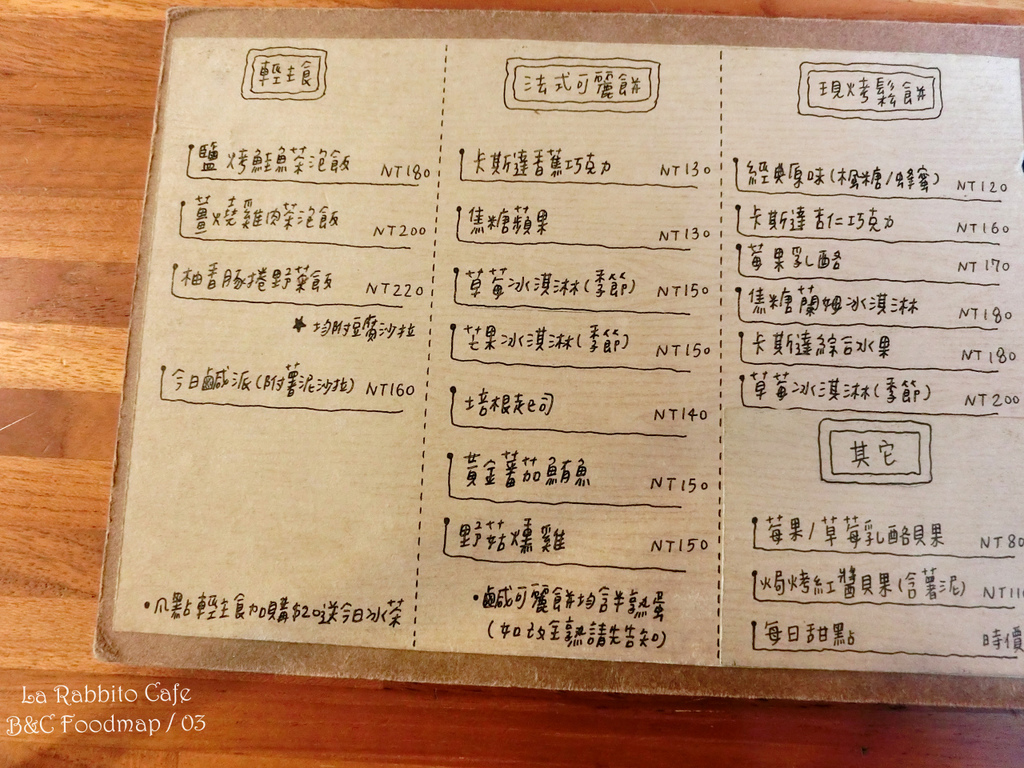 輕主食
鹽烤鮭魚茶泡飯 NT180
薑燒雞肉茶泡飯 NT200
柚香豚捲野菜飯 NT220
★均附豆腐沙拉
今日鹹派(附薯泥沙拉) NT160
•凡點輕主食加購$20送今日冰茶
法式可麗餅
卡斯達香蕉巧克力 NT130
焦糖蘋果 NT130
草莓冰淇淋(季節) NT150
芒果冰淇淋(季節) NT150
培根起司 NT140
黃金蕃茄鮪魚 NT150
野菇燻雞 NT150
•鹹可麗餅均含半熟蛋
(如改全熟請先告知)
現烤鬆餅
經典原味(楓糖/蜂蜜) NT120
卡斯達杏仁巧克力 NT160
莓果乳酪 NT170
焦糖蘭姆冰淇淋 NT180
卡斯達綜合水果 NT180
草莓冰淇淋(季節) NT200
其它
莓果/草莓乳酪貝果 NT80
焗烤紅醬貝果(含薯泥) NT110
每日甜點 時價
La Rabbito Cafe
B&C Foodmap / 03